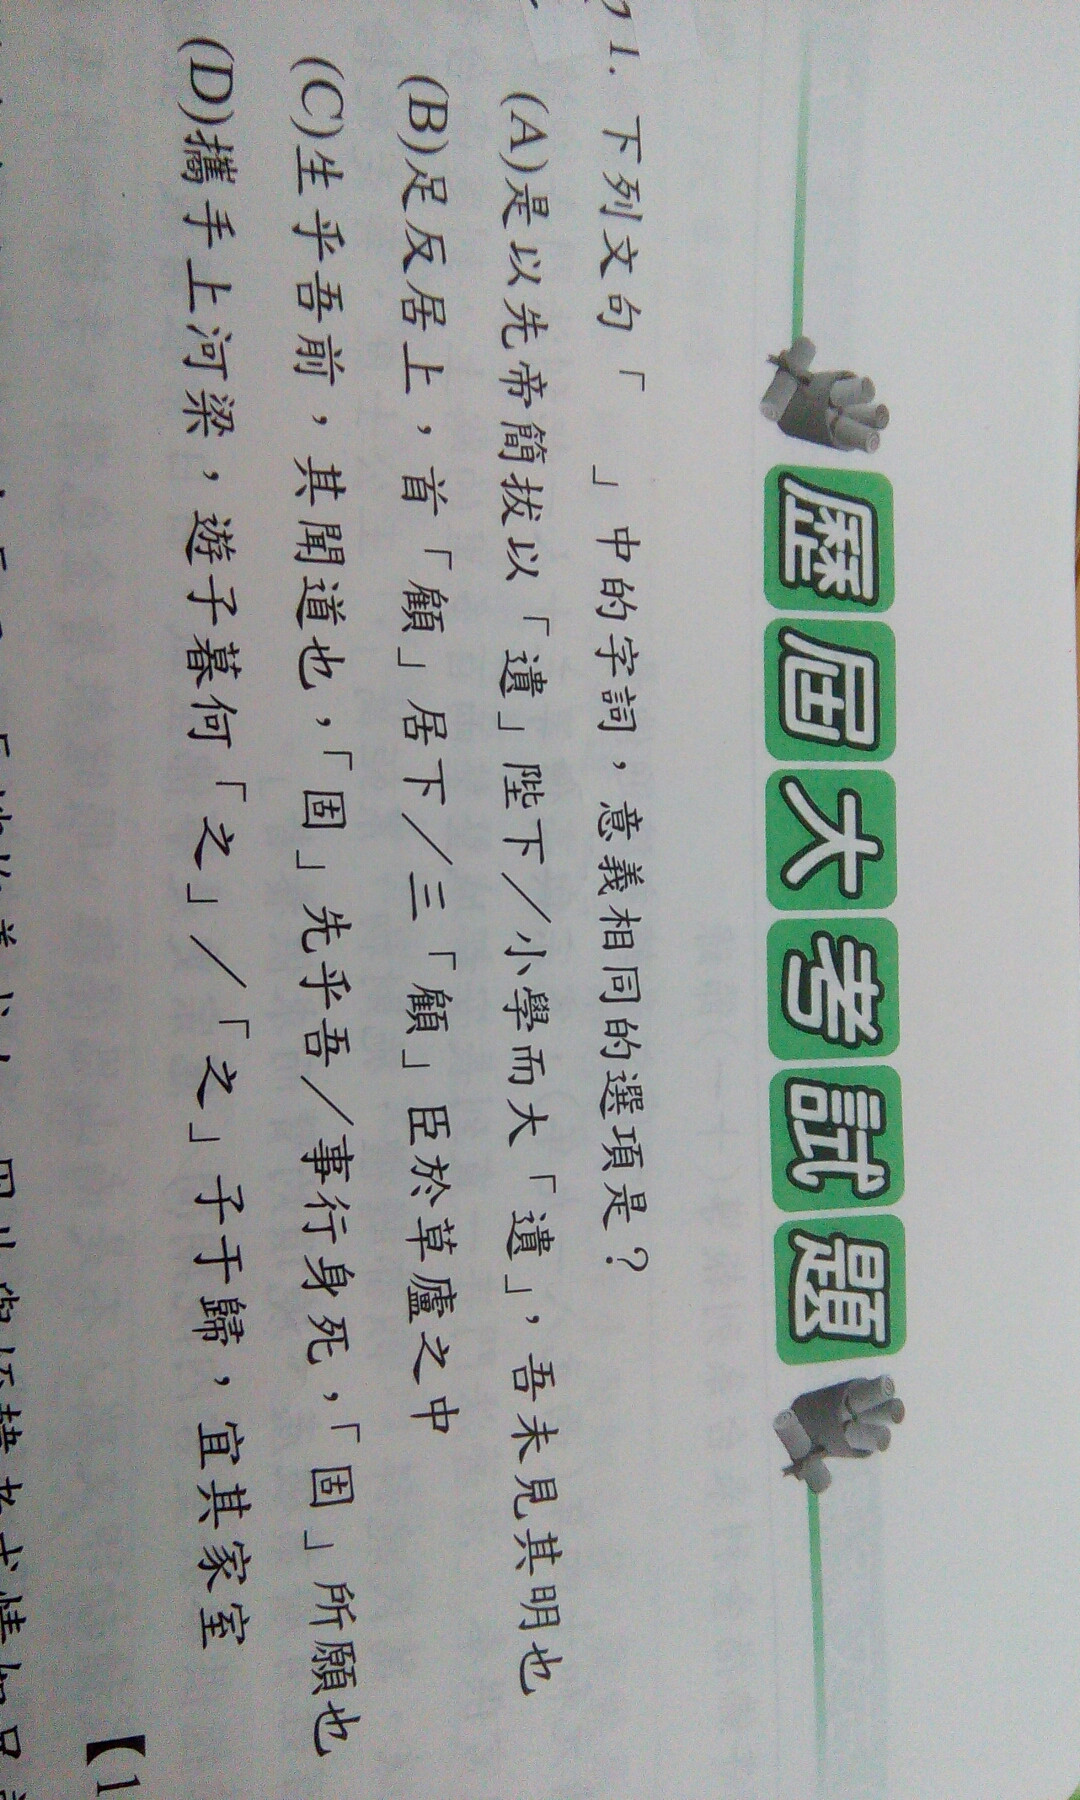 歷屆大考試題
1. 下列文句「　」中的字詞，意義相同的選項是？
(A)是以先帝簡拔以「遺」陛下／小學而大「遺」，吾未見其明也
(B)足反居上，首「顧」居下／三「顧」臣於草廬之中
(C)生乎吾前，其聞道也，「固」先乎吾／事行身死，「固」所願也
(D)攜手上河梁，遊子暮何「之」／「之」子于歸，宜其家室
【1